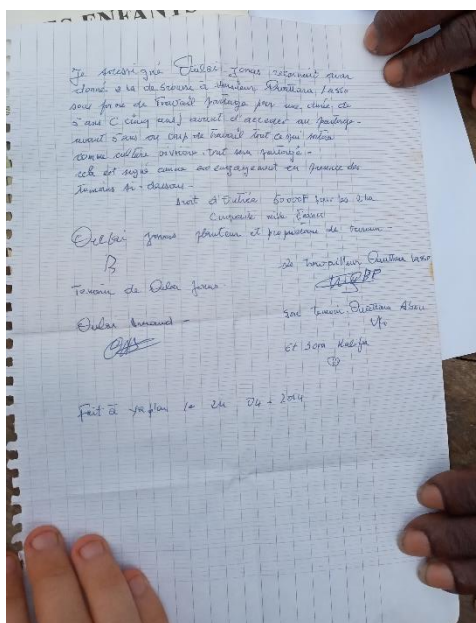 ES ENFANTS
Je soussigné Oulai Jonas reconnait avoir
donné 2 ha de brousse à monsieur Ouattara Lasso
sous forme de Travail partagé pour une durée de
5 ans (cinq ans) avant d'acceder au partage.
avant 5 ans en cas de Travail tout ce qui sera
comme culture vivrière tout sera partagé -
cela est signé comme un engagement en presence des
temoins ci-dessous -
Droit d'Entrée pour les 2 ha
Oulai Jonas planteur et proprietaire de terrain
Le travailleur Ouattara Lasso
Temoin de Oulai Jonas
Oulai
Son temoin Ouattara
Et
Fait à le 24 04 - 2014